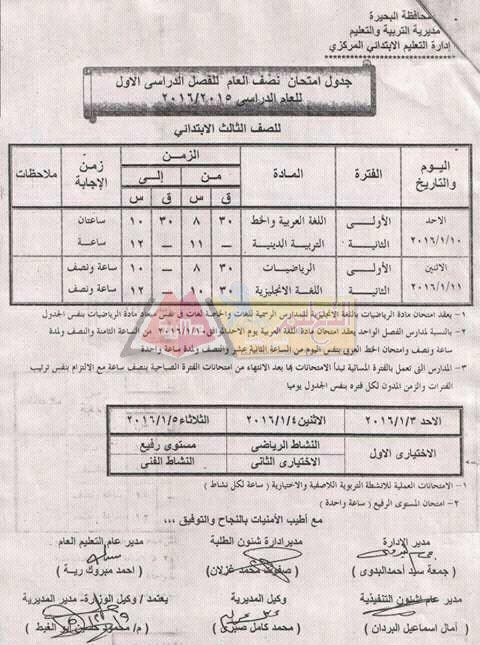 محافظة البحيرة
مديرية التربية والتعليم
إدارة التعليم الابتدائي المركزي
جدول امتحان نصف العام للفصل الدراسى الاول
للعام الدراسى ٢٠١٦/٢٠١٥
للصف الثالث الابتدائي
اليوم والتاريخ الفترة المادة الزمن زمن الإجابة ملاحظات
من إلى
ق س ق س
الاحد ٢٠١٦/١/١٠ الأولى اللغة العربية والخط ٣٠ ٨ ٣٠ ١٠ ساعتان
الثانية التربية الدينية ــ ١١ ــ ١٢ ساعة
الاثنين ٢٠١٦/١/١١ الأولى الرياضيات ٣٠ ٨ ــ ١٠ ساعة ونصف
الثانية اللغة الانجليزية ٣٠ ١٠ ــ ١٢ ساعة ونصف
١ - يعقد امتحان مادة الرياضيات باللغة الانجليزية للمدارس الرسمية للغات والخاصة لغات فى نفس ميعاد مادة الرياضيات بنفس الجدول
٢ - بالنسبة لمدارس الفصل الواحد يعقد امتحان مادة اللغة العربية يوم الاحد الموافق ٢٠١٦/١/١٠ من الساعة الثامنة والنصف ولمدة
ساعة ونصف وامتحان الخط العربى بنفس اليوم من الساعة الثانية عشر والنصف ولمدة ساعة واحدة
٣ - المدارس التى تعمل بالفترة المسائية تبدأ الامتحانات بها بعد الانتهاء من امتحانات الفترة الصباحية بنصف ساعة مع الالتزام بنفس ترتيب
الفترات والزمن المدون لكل فتره بنفس الجدول يوميا
الاحد ٢٠١٦/١/٣ الاثنين ٢٠١٦/١/٤ الثلاثاء ٢٠١٦/١/٥
الاختيارى الاول النشاط الرياضى مستوى رفيع
الاختيارى الثانى النشاط الفنى
١ - الامتحانات العملية للانشطة التربوية اللاصفية والاختيارية ( ساعة لكل نشاط )
٢ - امتحان المستوى الرفيع ( ساعة واحدة )
مع أطيب الأمنيات بالنجاح والتوفيق ...
مدير الإدارة مدير إدارة شئون الطلبة مدير عام التعليم العام
( جمعة سيد أحمد البدوى ) ( صفوت محمد غزلان ) ( احمد مبروك رية )
مدير عام الشئون التنفيذية وكيل المديرية يعتمد / وكيل الوزارة - مدير المديرية
( أمال اسماعيل البردان ) ( محمد كامل صبرى ) ( م/ محمود حسين ابو الغيط )